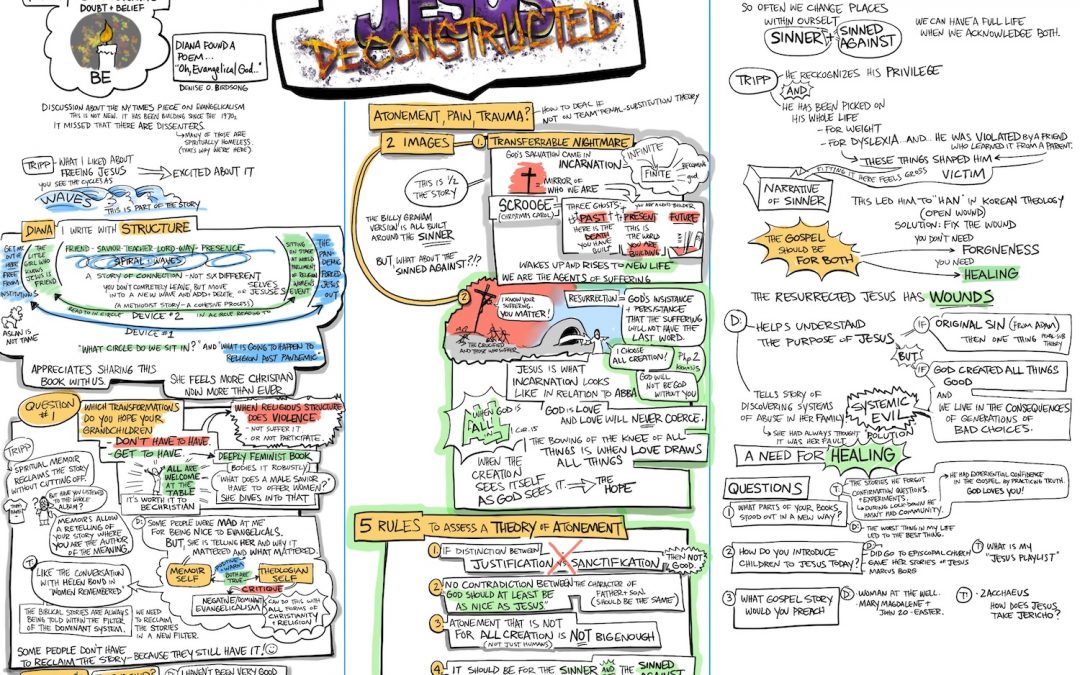 DOUBT + BELIEF
BE
DIANA FOUND A
POEM...
"Oh, Evangelical God.."
DENISE O. BIRDSONG
DISCUSSION ABOUT THE NY TIMES PIECE ON EVANGELICALISM
THIS IS NOT NEW. IT HAS BEEN BUILDING SINCE THE 1970s
IT MISSED THAT THERE ARE DISSENTERS.
MANY OF THOSE ARE
SPIRITUALLY HOMELESS.
(THAT'S WHY WE'RE HERE).
TRIPP
WHAT I LIKED ABOUT
FREEING JESUS
EXCITED ABOUT IT
YOU SEE THE CYCLES AS
WAVES
THIS IS PART OF THE STORY
DIANA
I WRITE WITH STRUCTURE
GET ME
OUT OF
HERE
FROM
INSTITUTIONS
THE
LITTLE
GIRL WHO
KNOWS
JESUS IS
FRIEND
FRIEND - SAVIOR - TEACHER - LORD - WAY - PRESENCE
SPIRAL - WAVES
A STORY OF CONNECTION - NOT SIX DIFFERENT
SELVES
OR JESUSES
YOU DON'T COMPLETELY LEAVE, BUT MOVE
INTO A NEW WAVE AND ADD + DELETE.
(A METHODIST STORY - A COHESIVE PROCESS)
SITTING
ON STAGE
AT WORLD
PARLIAMENT
OF
RELIGION
WOMEN'S
EVENT
THE
PAN-
DEMIC
FORCED
JESUS
OUT
DEVICE #2
DEVICE #1
ASLAN IS
NOT TAME
"WHAT CIRCLE DO WE SIT IN?" AND "WHAT IS GOING TO HAPPEN TO
RELIGION POST PANDEMIC"
APPRECIATES SHARING THIS
BOOK WITH US.
SHE FEELS MORE CHRISTIAN
NOW MORE THAN EVER.
QUESTION
#1
WHICH TRANSFORMATIONS
DO YOU HOPE YOUR
GRANDCHILDREN
DON'T HAVE TO HAVE.
GET TO HAVE.
WHEN RELIGIOUS STRUCTURE
DOES VIOLENCE
- NOT SUFFER IT
- OR NOT PARTICIPATE.
TRIPP
SPIRITUAL MEMOIR
RECLAIMS THE STORY
WITHOUT CUTTING OFF.
BUT HAVE YOU LISTENED
TO THE WHOLE
ALBUM?
MEMOIRS ALLOW
A RETELLING OF
YOUR STORY WHERE
YOU ARE THE AUTHOR
OF THE MEANING
ALL ARE
WELCOME
AT THE
TABLE
IT'S WORTH IT TO
BE CHRISTIAN
DEEPLY FEMINIST BOOK
BODIES IT ROBUSTLY
"WHAT DOES A MALE SAVIOR
HAVE TO OFFER WOMEN?"
SHE DIVES INTO THAT
D: SOME PEOPLE WERE MAD AT ME
FOR BEING NICE TO EVANGELICALS.
BUT, SHE IS TELLING HER AND WHY IT
MATTERED AND WHAT MATTERED.
MEMOIR
SELF
POSITIVE + WARM
BOTH ARE
TRUE
THEOLOGIAN
SELF
CRITIQUE
T
LIKE THE CONVERSATION
WITH HELEN BOND IN
"WOMEN REMEMBERED"
NEGATIVE/DOMINANT
EVANGELICALISM
CAN DO THIS WITH
ALL FORMS OF
CHRISTIANITY
+ RELIGION
THE BIBLICAL STORIES ARE ALWAYS
BEING TOLD WITHIN THE FILTER
OF THE DOMINANT SYSTEM.
WE NEED
TO RECLAIM
THE STORIES
IN A NEW FILTER.
SOME PEOPLE DON'T HAVE
TO RECLAIM THE STORY - BECAUSE THEY STILL HAVE IT!
I HAVEN'T BEEN VERY GOOD
JESUS
DECONSTRUCTED
ATONEMENT, PAIN, TRAUMA?
HOW TO DEAL IF
NOT ON TEAM PENAL-SUBSTITUTION THEORY
2 IMAGES
1.
TRANSFERRABLE NIGHTMARE
GOD'S SALVATION CAME IN
INCARNATION
INFINITE
BECOMING
FINITE
MIRROR OF
WHO WE ARE
THIS IS 1/2
THE STORY
SCROOGE
(CHRISTMAS CAROL)
THREE GHOSTS
PAST
PRESENT
FUTURE
HERE IS THE
DEATH
YOU HAVE
BUILT
THIS IS
THE WORLD
YOU ARE
BUILDING
WAKES UP AND RISES TO NEW LIFE
WE ARE THE AGENTS OF SUFFERING
THE BILLY GRAHAM
VERSION IS ALL BUILT
AROUND THE SINNER
BUT WHAT ABOUT THE
"SINNED AGAINST?!?"
2
I KNOW YOUR
SUFFERING.
YOU MATTER!
THE CRUCIFIED
AND THOSE WHO SUFFER
RESURRECTION = GOD'S INSISTANCE
+ PERSISTANCE
THAT THE SUFFERING
WILL NOT HAVE THE
LAST WORD.
I CHOOSE
ALL CREATION!
Php. 2
KENOSIS
GOD WILL
NOT BE GOD
WITHOUT YOU
JESUS IS WHAT
INCARNATION LOOKS
LIKE IN RELATION TO ABBA
WHEN GOD IS
ALL
IN
ALL
1 COR. 15
GOD IS LOVE
AND LOVE WILL NEVER COERCE.
THE BOWING OF THE KNEE OF ALL
THINGS IS WHEN LOVE DRAWS
ALL THINGS
WHEN THE
CREATION
SEES ITSELF
AS GOD SEES IT.
THE
HOPE
5 RULES TO ASSESS A THEORY OF ATONEMENT
1. IF DISTINCTION BETWEEN
JUSTIFICATION VS SANCTIFICATION
THEN NOT
GOOD.
2 NO CONTRADICTION BETWEEN THE CHARACTER OF
FATHER + SON
(SHOULD BE THE SAME)
GOD SHOULD AT LEAST BE
AS NICE AS JESUS"
3 ATONEMENT THAT IS NOT
FOR ALL CREATION IS NOT BIG ENOUGH
(NOT JUST HUMANS)
4. IT SHOULD BE FOR THE SINNER AND THE SINNED
AGAINST
SO OFTEN WE CHANGE PLACES
WITHIN OURSELF
SINNER + SINNED
AGAINST
WE CAN HAVE A FULL LIFE
WHEN WE ACKNOWLEDGE BOTH.
TRIPP
HE RECKOGNIZES HIS PRIVILEGE
AND
HE HAS BEEN PICKED ON
HIS WHOLE LIFE
- FOR WEIGHT
- FOR DYSLEXIA AND... HE WAS VIOLATED BY A FRIEND
WHO LEARNED IT FROM A PARENT.
THESE THINGS SHAPED HIM
FITTING IT HERE FEELS GROSS
VICTIM
NARRATIVE
OF SINNER
THIS LED HIM TO "HAN" IN KOREAN THEOLOGY
(OPEN WOUND)
SOLUTION: FIX THE WOUND
THE GOSPEL
SHOULD BE
FOR BOTH
YOU DON'T NEED
FORGIVENESS
YOU NEED
HEALING
THE RESURRECTED JESUS HAS WOUNDS
D:
HELPS UNDERSTAND
THE PURPOSE OF JESUS
IF
ORIGINAL SIN (FROM ADAM)
THEN ONE THING
PENAL SUB
THEORY
BUT
IF
GOD CREATED ALL THINGS
GOOD
AND
WE LIVE IN THE CONSEQUENCES
OF GENERATIONS OF
BAD CHOICES.
TELLS STORY OF
DISCOVERING SYSTEMS
OF ABUSE IN HER FAMILY
SHE HAD ALWAYS THOUGHT
IT WAS HER FAULT
SYSTEMIC
EVIL
POLLUTION
A NEED FOR HEALING
QUESTIONS
1 WHAT PARTS OF YOUR BOOKS
STOOD OUT IN A NEW WAY?
T.
THE STORIES HE FORGOT
CONFIRMATION QUESTIONS.
+ EXPERIMENTS.
DURING LOCKDOWN HE
HASN'T HAD COMMUNITY.
HE HAD EXPERIENTIAL CONFIDENCE
IN THE GOSPEL BY PRACTICING TRUTH.
GOD LOVES YOU!
D - THE WORST THING IN MY LIFE
LED TO THE BEST THING.
2 HOW DO YOU INTRODUCE
CHILDREN TO JESUS TODAY?
D - DID GO TO EPISCOPAL CHURCH
- GAVE HER STORIES OF JESUS
MARCUS BORG
T WHAT IS MY
"JESUS PLAYLIST"
3 WHAT GOSPEL STORY
WOULD YOU PREACH
D - WOMAN AT THE WELL.
- MARY MAGDALENE +
JOHN 20 - EASTER.
T - ZACCHAEUS
HOW DOES JESUS
TAKE JERICHO?